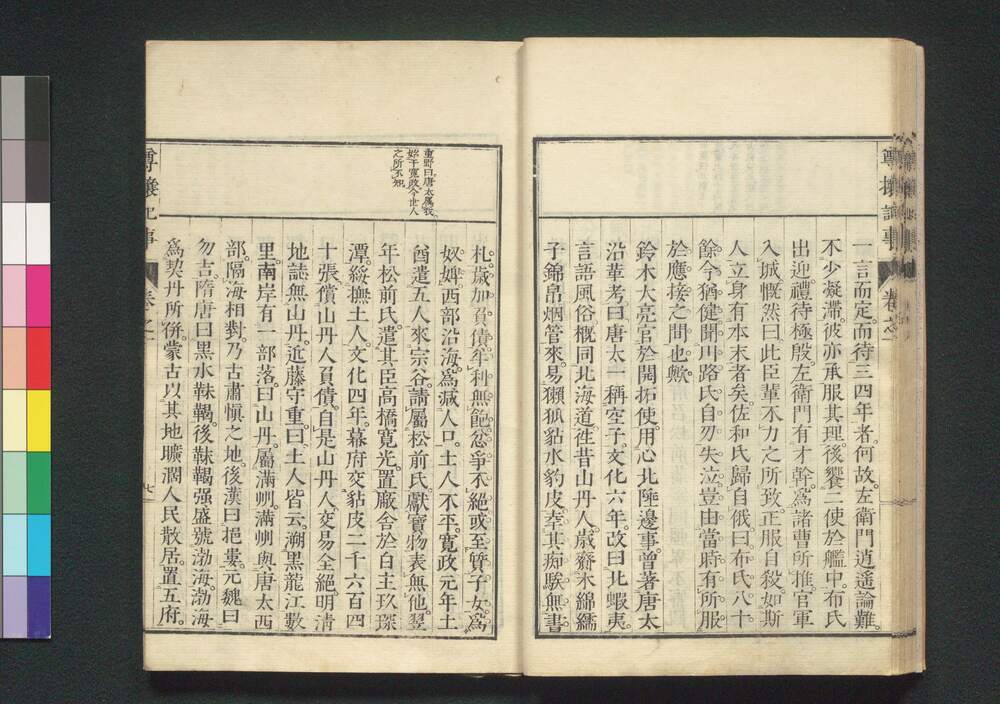 尊攘記事
卷之一
一言而定。而待三四年者。何故。左衛門逍遥論難。
不少凝滯。彼亦承服其理。後饗二使於艦中。布氏
出迎。禮待極慇。左衛門有才幹。爲諸曹所推。官軍
入城慨然曰。此臣輩不力之所致。正服自殺。如斯
人立身有本末者矣。佐和氏歸自俄。曰布氏八十
餘。今猶健。聞川路氏自刃失泣。豈由當時有所服
於應接之間也歟。
鈴木大亮官於開拓使。用心北陲邊事。曾著唐太
沿革考曰。唐太一稱空子。文化六年。改曰北蝦夷。
言語風俗。概同北海道。徃昔山丹人。歳齎米綿繻
子錦帛烟管來。易獺狐貂水豹皮。幸其痴騃無書
重野曰。唐太屬我。
始于寛政。今世人
之所不知。
札。歳加負債。年利無飽。忿爭不絕。或至質子女。爲
奴婢。西部沿海。爲減人口。土人不平。寛政元年。土
酋遣五人來宗谷。請屬松前氏。獻寶物。表無他。翌
年松前氏遣其臣高橋寛光。置廠舍於白主玖㻞
潭。綏撫土人。文化四年。幕府交貂皮二千六百四
十張。償山丹人負債。自是山丹人交易全絕。明清
地誌無山丹。近藤守重曰。土人皆云。溯黒龍江數
里。南岸有一部落。曰山丹。屬滿州。滿州與唐太西
部。隔海相對。乃古肅愼之地。後漢曰挹婁。元魏曰
勿吉。隋唐曰黒水靺鞨。後靺鞨强盛號渤海。渤海
爲契丹所併。蒙古以其地曠濶人民散居。置五府。
尊攘記事
卷之一
七